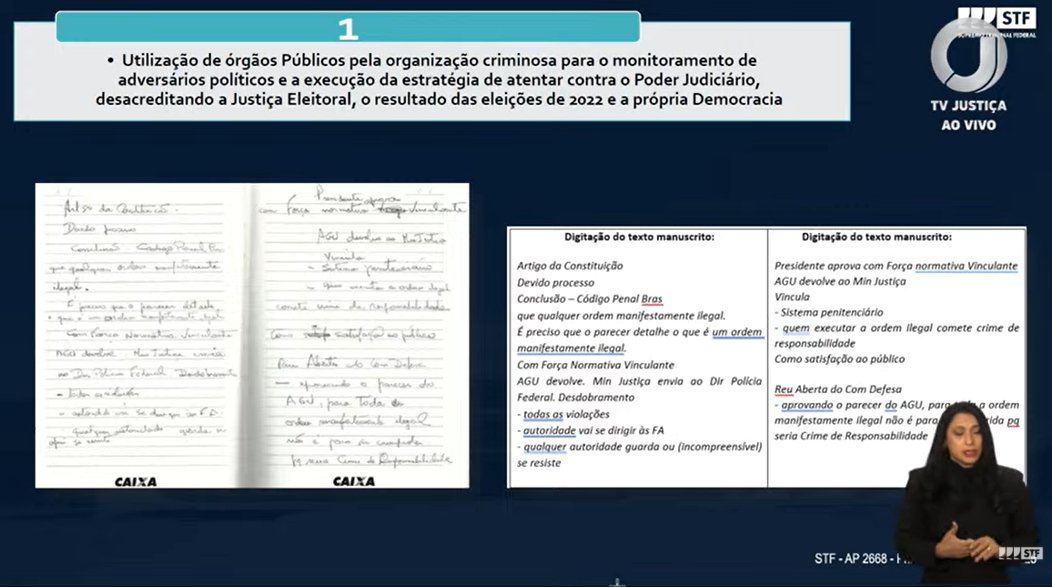 1
• Utilização de órgãos Públicos pela organização criminosa para o monitoramento de
adversários políticos e a execução da estratégia de atentar contra o Poder Judiciário,
desacreditando a Justiça Eleitoral, o resultado das eleições de 2022 e a própria Democracia
STF
SUPREMO TRIBUNAL FEDERAL
TV JUSTIÇA
AO VIVO
Art so da Constituição.
Devido processo
Conclusão Código Penal
que qualquer ordem manifestamente
ilegal.
É preciso que o parecer detalhe
o que é um ordem manifestamente ilegal
Com Força Normativa Vinculante
AGU devolve Min Justiça envia
ao Dir Polícia Federal Desdobramento
- todas as violações
- autoridade vai se dirigir às FA
- qualquer autoridade guarda ou
se resiste
CAIXA
Presidente aprova
com Força normativa Vinculante
AGU devolve ao Min Justiça
Vincula
- Sistema penitenciário
- quem executar a ordem ilegal
comete crime de responsabilidade
Como satisfação ao público
Reu Aberta do Com Defesa
- aprovando o parecer do
AGU, para toda a
ordem manifestamente ilegal
não é para ser cumprida
pq seria Crime de Responsabilidade
CAIXA
Digitação do texto manuscrito:
Artigo da Constituição
Devido processo
Conclusão – Código Penal Bras
que qualquer ordem manifestamente ilegal.
É preciso que o parecer detalhe o que é um ordem
manifestamente ilegal.
Com Força Normativa Vinculante
AGU devolve. Min Justiça envia ao Dir Polícia
Federal. Desdobramento
- todas as violações
- autoridade vai se dirigir às FA
- qualquer autoridade guarda ou (incompreensível)
se resiste
Digitação do texto manuscrito:
Presidente aprova com Força normativa Vinculante
AGU devolve ao Min Justiça
Vincula
- Sistema penitenciário
- quem executar a ordem ilegal comete crime de
responsabilidade
Como satisfação ao público
Reu Aberta do Com Defesa
- aprovando o parecer do AGU, para a ordem
manifestamente ilegal não é para pq
seria Crime de Responsabilidade
STF - AP 2668 -
STF